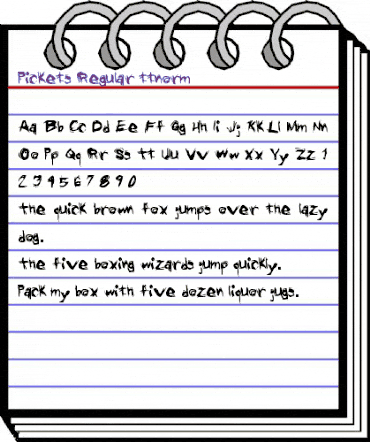 Pickets Regular ttnorm
Aa Bb Cc Dd Ee Ff Gg Hh Ii Jj KK Li Mm Nn
Oo Pp Qq Rr Ss tt Uu Vv Ww Xx Yy Zz 1
2 3 4 5 6 7 8 9 0
the quick brown fox jumps over the lazy
dog.
the five boxing wizards jump quickly.
Pack my box with five dozen liquor jugs.